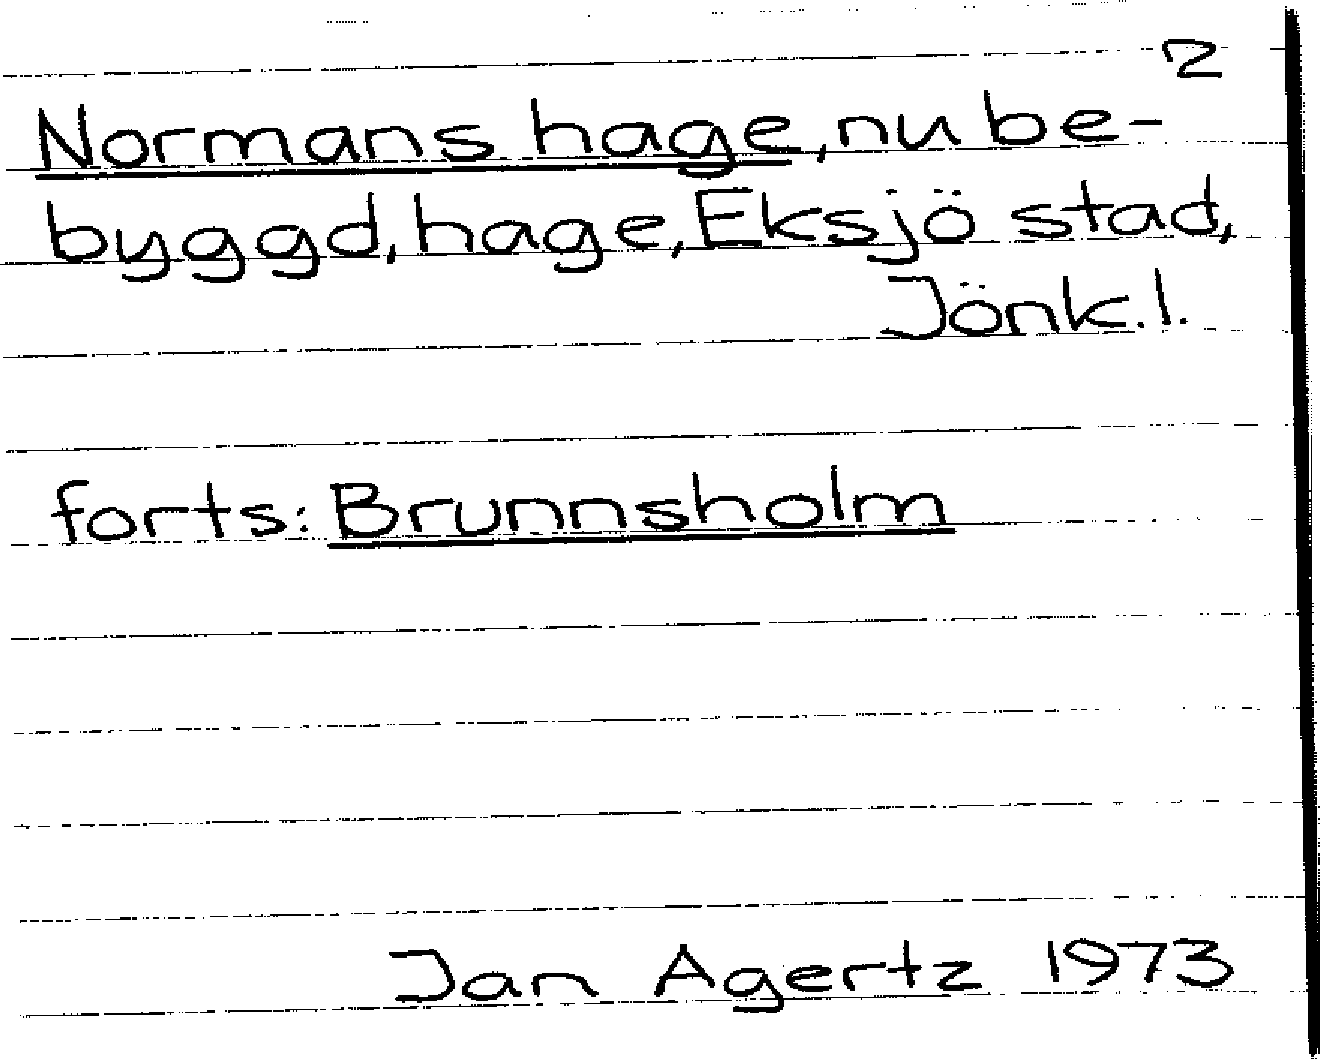 2
Normans hage, nu be-
byggd, hage, Eksjö stad,
Jönk.l.
forts: Brunnsholm
Jan Agertz 1973